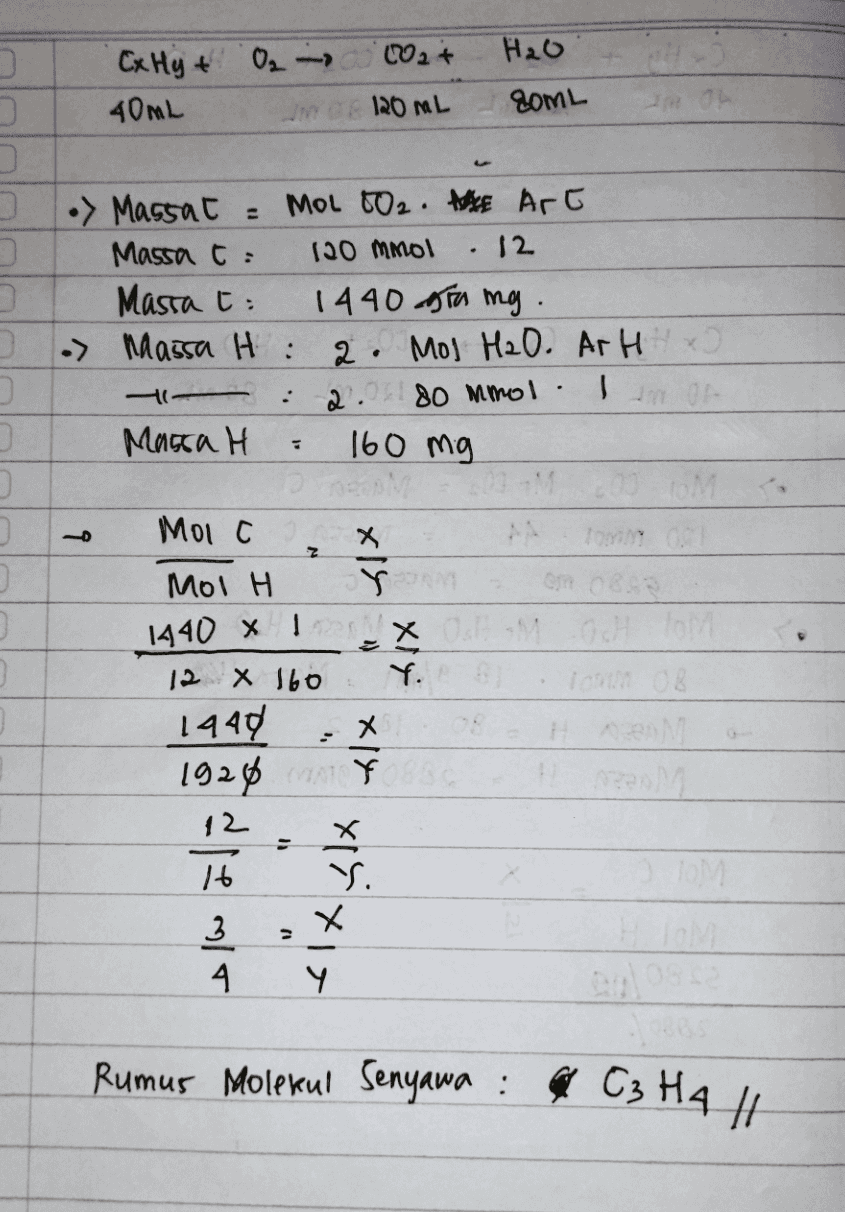 CxHy + O2 → CO2 + H2O
40mL 120 mL 80mL
•> Massa C = MOL CO2 . Ar C
Massa C : 120 mmol . 12
Massa C : 1440 mg .
•> Massa H : 2 . Mol H2O. Ar H
—11— : 2 . 80 mmol . 1
Massa H = 160 mg
→ Mol C = x
Mol H y
1440 x 1 = x
12 x 160 y.
1440 = x
1920 y
12 = x
16 y.
3 = x
4 y
Rumus Molekul Senyawa : C3 H4 //